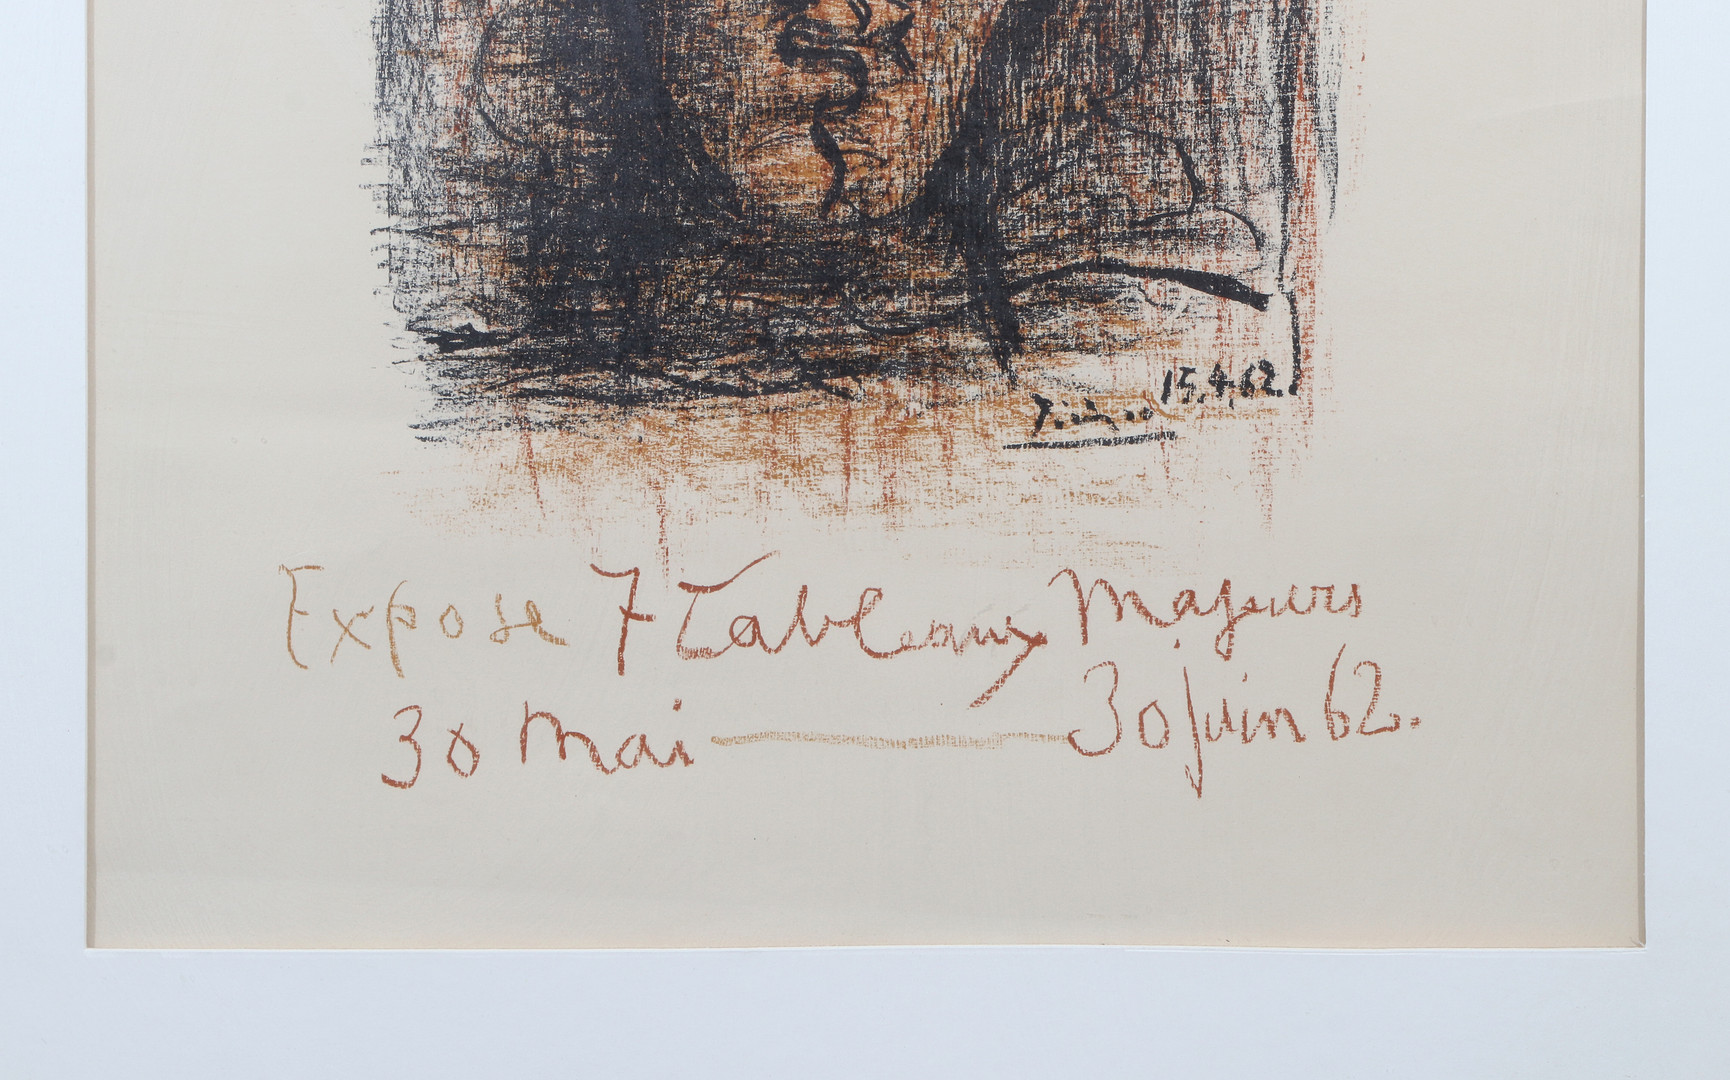 15.4.62.
Picasso
Expose 7 Tableaux Majeurs
30 Mai — 30 juin 62.